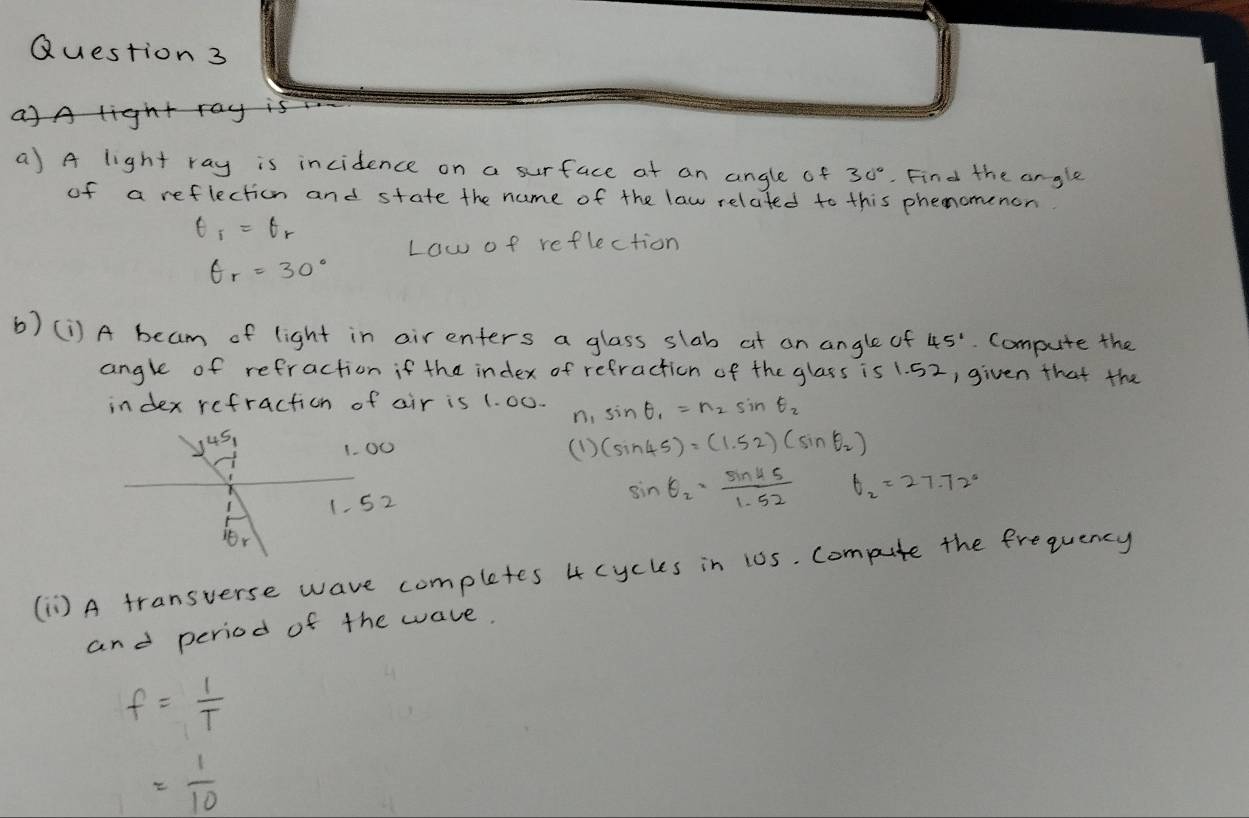 Question 3
a) A light ray is in
a) A light ray is incidence on a surface at an angle of 30°. Find the angle
of a reflection and state the name of the law related to this phenomenon.
θi = θr
Law of reflection
θr = 30°
b) (i) A beam of light in air enters a glass slab at an angle of 45°. Compute the
angle of refraction if the index of refraction of the glass is 1.52, given that the
index refraction of air is 1.00.
n₁ sin θ₁ = n₂ sin θ₂
45
1.00
(1)(sin45) = (1.52)(sin θ₂)
1.52
sin θ₂ = sin45 / 1.52
θ₂ = 27.72°
θr
(ii) A transverse wave completes 4 cycles in 10s. Compute the frequency
and period of the wave.
f = 1/T
= 1/10